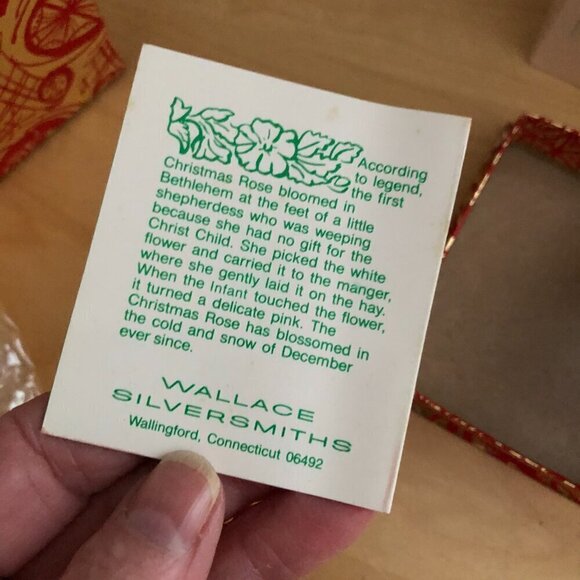 According
to legend,
the first
Christmas Rose bloomed in
Bethlehem at the feet of a little
shepherdess who was weeping
because she had no gift for the
Christ Child. She picked the white
flower and carried it to the manger,
where she gently laid it on the hay.
When the Infant touched the flower,
it turned a delicate pink. The
Christmas Rose has blossomed in
the cold and snow of December
ever since.
WALLACE
SILVERSMITHS
Wallingford, Connecticut 06492